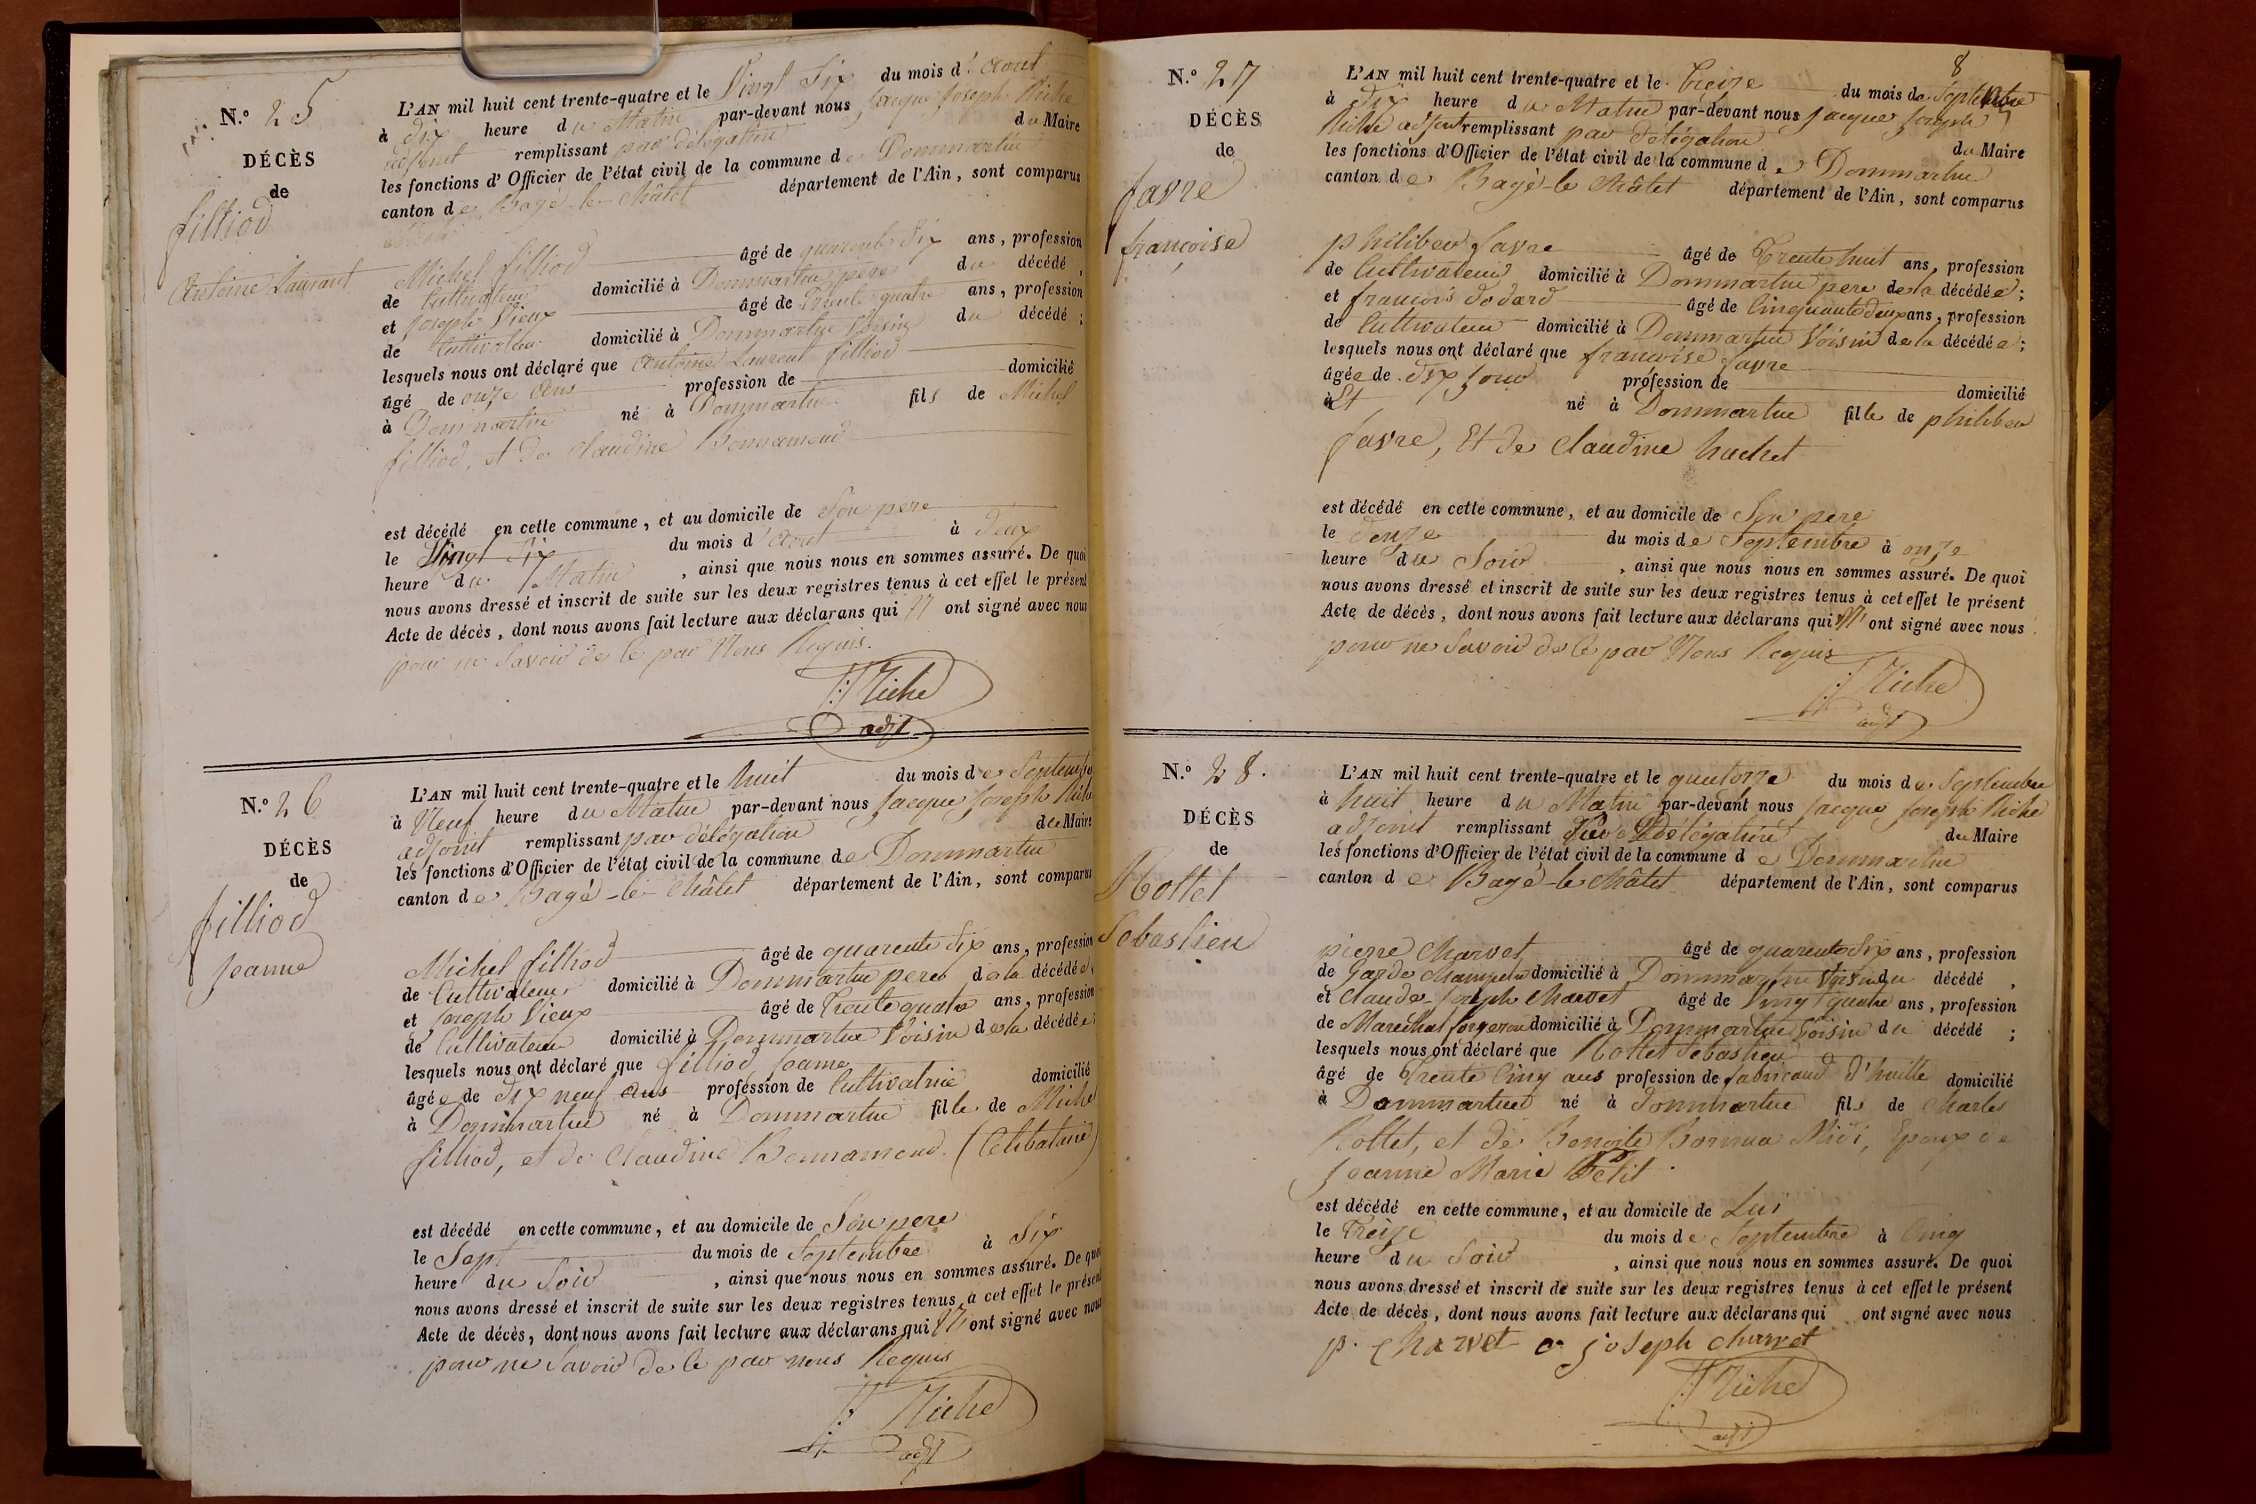 N.º 25
DÉCÈS
de
filliod
Antoine Laurent
L'AN mil huit cent trente-quatre et le Vingt Six du mois d'Aout
à dix heure du Matin par-devant nous Jacque Joseph Riche
adjoint remplissant par délégation du Maire
les fonctions d'Officier de l'état civil de la commune de Dommartin
canton de Bagé-le-Châtel département de l'Ain, sont comparus
Michel filliod âgé de quarente Six ans, profession
de Cultivateur domicilié à Dommartin pere du décédé,
et Joseph Vieux âgé de Trente quatre ans, profession
de Cultivateur domicilié à Dommartin Voisin du décédé;
lesquels nous ont déclaré que Antoine Laurent filliod
âgé de onze ans profession de domicilié
à Dommartin né à Dommartin fils de Michel
filliod, et de Claudine Bonnamour
est décédé en cette commune, et au domicile de Son pere
le Vingt Six du mois d'Aout à deux
heure du Matin, ainsi que nous nous en sommes assuré. De quoi
nous avons dressé et inscrit de suite sur les deux registres tenus à cet effet le présent
Acte de décès, dont nous avons fait lecture aux déclarans qui N' ont signé avec nous
pour ne Savoir de ce par Nous Requis.
Riche
adjt
N.º 26
DÉCÈS
de
filliod
Jeanne
L'AN mil huit cent trente-quatre et le huit du mois de Septembre
à Neuf heure du Matin par-devant nous Jacque Joseph Riche
adjoint remplissant par délégation du Maire
les fonctions d'Officier de l'état civil de la commune de Dommartin
canton de Bagé-le-Châtel département de l'Ain, sont comparus
Michel filliod âgé de quarente Six ans, profession
de Cultivateur domicilié à Dommartin pere de la décédée
et Joseph Vieux âgé de Trente quatre ans, profession
de Cultivateur domicilié à Dommartin Voisin de la décédée;
lesquels nous ont déclaré que filliod Jeanne
âgée de dix neuf ans profession de Cultivatrice domicilié
à Dommartin né à Dommartin fille de Michel
filliod, et de Claudine Bonnamour. (Célibataire)
est décédé en cette commune, et au domicile de Son pere
le Sept du mois de Septembre à Six
heure du Soir, ainsi que nous nous en sommes assuré. De quoi
nous avons dressé et inscrit de suite sur les deux registres tenus à cet effet le présent
Acte de décès, dont nous avons fait lecture aux déclarans qui N' ont signé avec nous
pour ne Savoir de ce par nous Requis
Riche
adjt
8
N.º 27
DÉCÈS
de
favre
françoise
L'AN mil huit cent trente-quatre et le Treize du mois de Septembre
à Dix heure du Matin par-devant nous Jacque Joseph
Riche adjoint remplissant par délégation du Maire
les fonctions d'Officier de l'état civil de la commune de Dommartin
canton de Bagé-le Châtel département de l'Ain, sont comparus
philiber favre âgé de Trente huit ans, profession
de Cultivateur domicilié à Dommartin pere de la décédée;
et francois dodard âgé de Cinquante deux ans, profession
de Cultivateur domicilié à Dommartin Voisin de la décédée;
lesquels nous ont déclaré que francoise favre
âgée de dix jour profession de domicilié
à Et né à Dommartin fille de philiber
favre, Et de Claudine huchet
est décédé en cette commune, et au domicile de Son père
le douze du mois de Septembre à onze
heure du Soir, ainsi que nous nous en sommes assuré. De quoi
nous avons dressé et inscrit de suite sur les deux registres tenus à cet effet le présent
Acte de décès, dont nous avons fait lecture aux déclarans qui N' ont signé avec nous
pour ne Savoir de ce par Nous Requis
Riche
adjt
N.º 28.
DÉCÈS
de
Rottet
Sébastien
L'AN mil huit cent trente-quatre et le quatorze du mois de Septembre
à huit heure du Matin par-devant nous Jacque Joseph Riche
adjoint remplissant par Délégation du Maire
les fonctions d'Officier de l'état civil de la commune de Dommartin
canton de Bagé-le Châtel département de l'Ain, sont comparus
pierre Charvet âgé de quarente Six ans, profession
de Garde Champetre domicilié à Dommartin Voisin du décédé,
et Claude Joseph Charvet âgé de Vingt quatre ans, profession
de Marechal forgeron domicilié à Dommartin Voisin du décédé;
lesquels nous ont déclaré que Rottet Sébastien
âgé de Trente Cinq ans profession de fabricand d'huille domicilié
à Dommartin né à Dommartin fils de Charles
Rottet, et de Benoite Epoux de
Jeanne Marie Petit
est décédé en cette commune, et au domicile de Lui
le Treize du mois de Septembre à Cinq
heure du Soir, ainsi que nous nous en sommes assuré. De quoi
nous avons dressé et inscrit de suite sur les deux registres tenus à cet effet le présent
Acte de décès, dont nous avons fait lecture aux déclarans qui ont signé avec nous
p. Charvet c joseph charvet
Riche
adjt